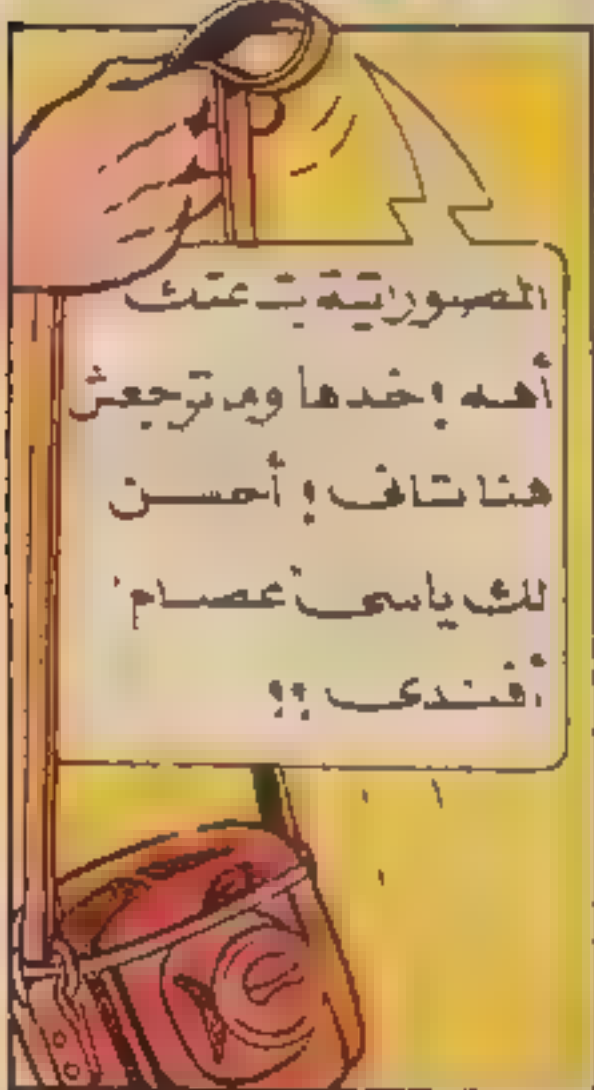 المصوراتية بتاعتك
أهه ! خدها وما ترجعش
هنا تاف ! أحسن
لك ياسى عصام
أفندى !!